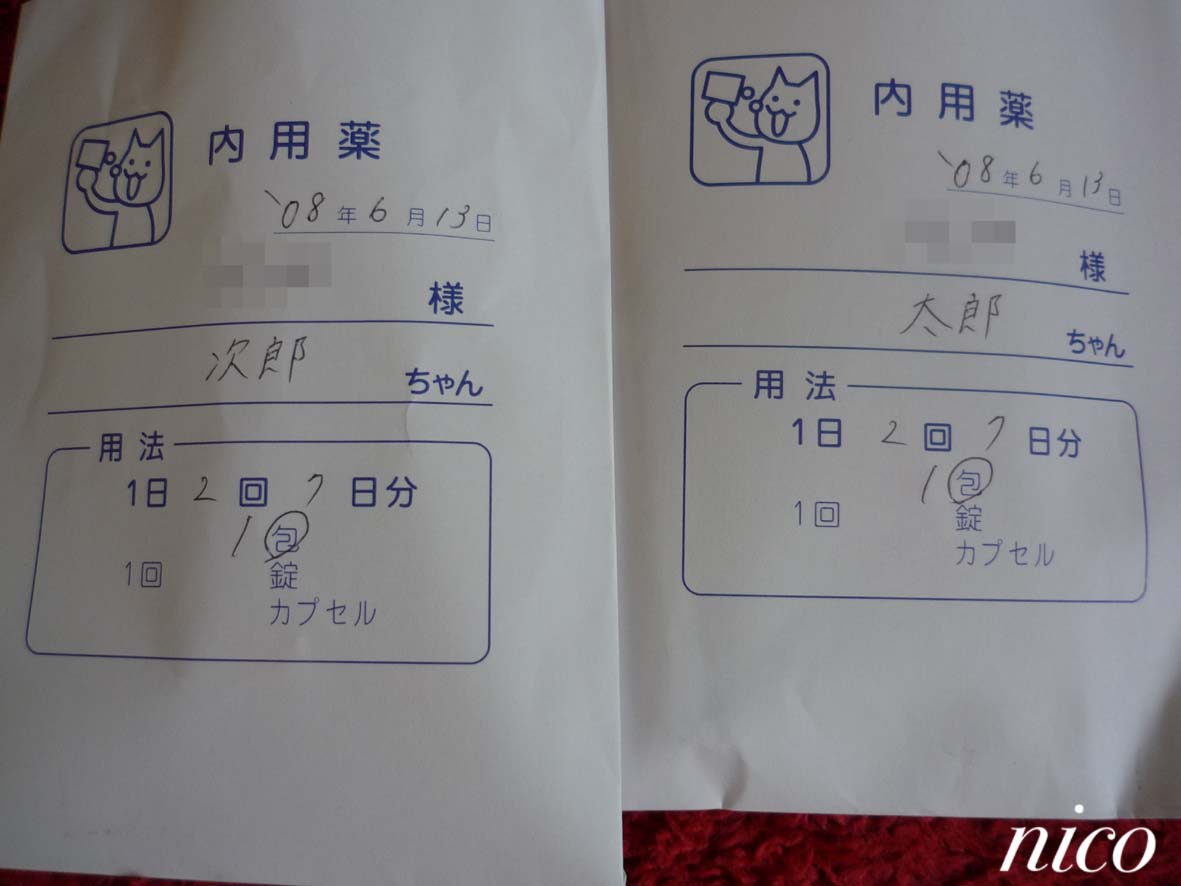 内用薬
'08年6月13日
様
次郎 ちゃん
用法
1日 2 回 7 日分
1 包
1回 錠
カプセル
内用薬
'08年6月13日
様
太郎 ちゃん
用法
1日 2 回 7 日分
1 包
1回 錠
カプセル
nico